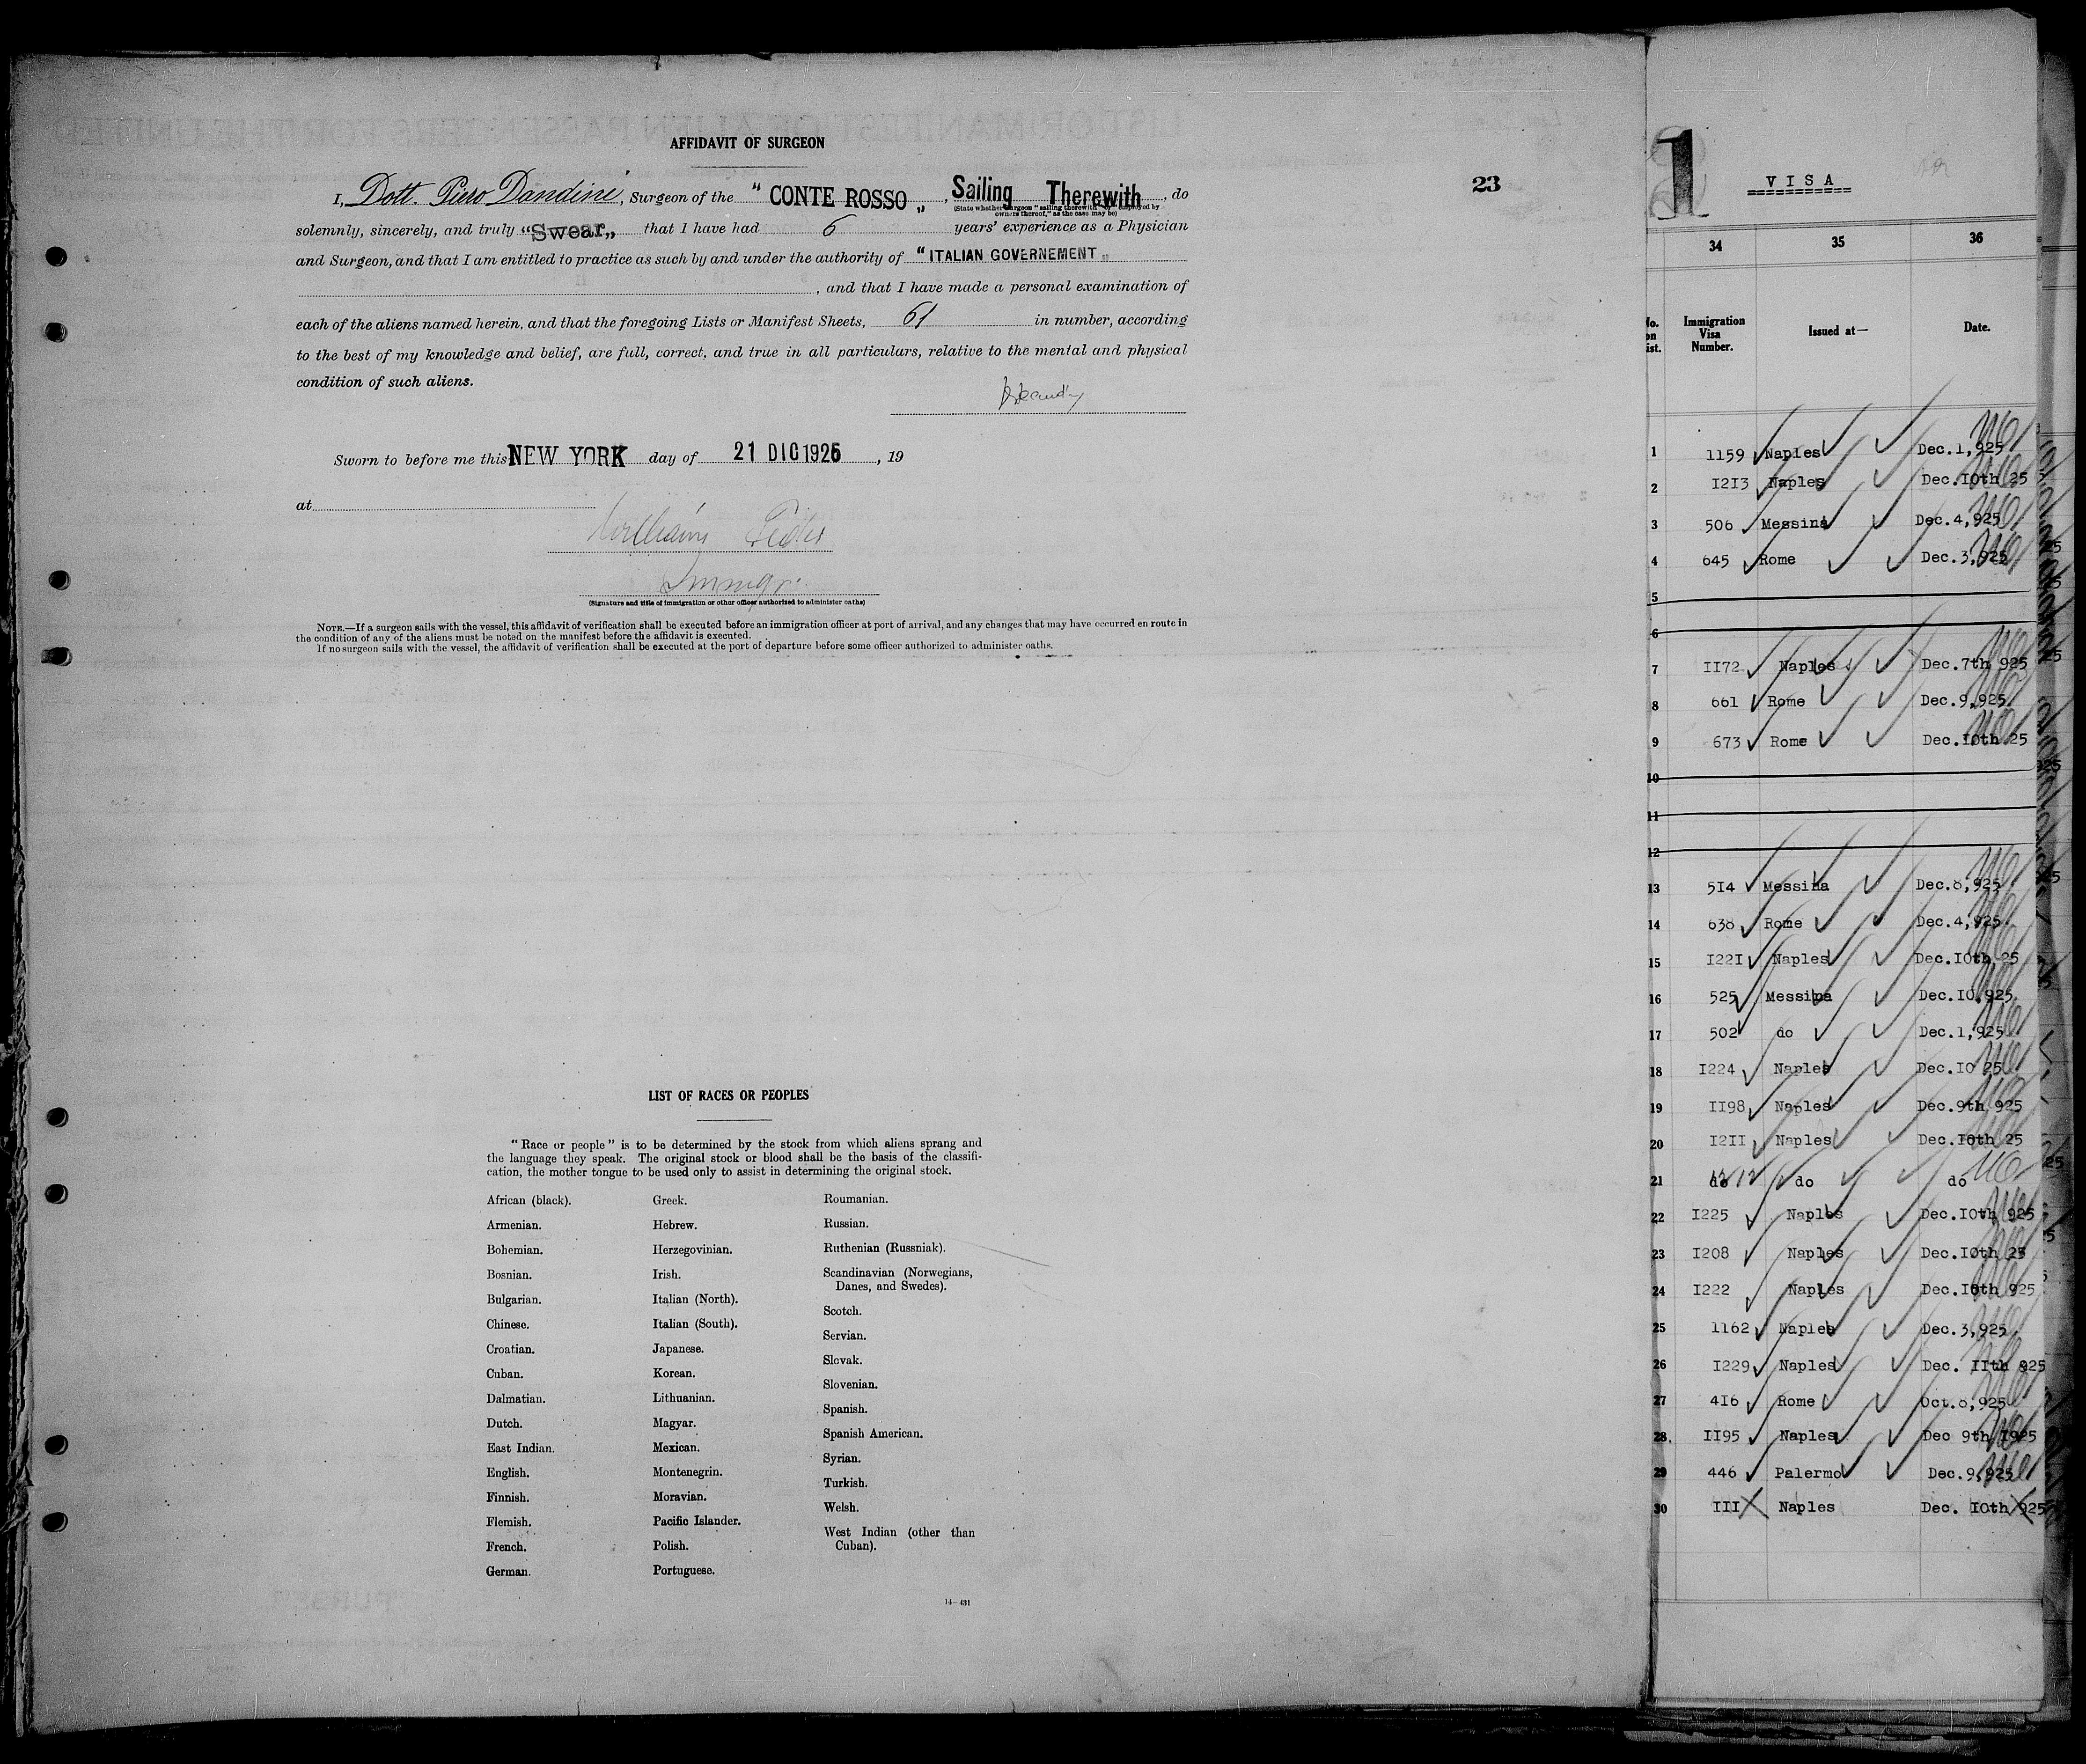 AFFIDAVIT OF SURGEON
I, Dott. Piero Dandini, Surgeon of the " CONTE ROSSO „ , Sailing Therewith , do
(State whether surgeon "sailing therewith" or "employed by
owners thereof," as the case may be)
solemnly, sincerely, and truly "Swear„ that I have had 6 years' experience as a Physician
and Surgeon, and that I am entitled to practice as such by and under the authority of "ITALIAN GOVERNEMENT „
, and that I have made a personal examination of
each of the aliens named herein, and that the foregoing Lists or Manifest Sheets, 61 in number, according
to the best of my knowledge and belief, are full, correct, and true in all particulars, relative to the mental and physical
condition of such aliens.
Sworn to before me this NEW YORK day of 21 DIC 1925 , 19
at
William
Immigr.
(Signature and title of immigration or other officer authorized to administer oaths)
NOTE.—If a surgeon sails with the vessel, this affidavit of verification shall be executed before an immigration officer at port of arrival, and any changes that may have occurred en route in
the condition of any of the aliens must be noted on the manifest before the affidavit is executed.
If no surgeon sails with the vessel, the affidavit of verification shall be executed at the port of departure before some officer authorized to administer oaths.
23
LIST OF RACES OR PEOPLES
"Race or people" is to be determined by the stock from which aliens sprang and
the language they speak. The original stock or blood shall be the basis of the classifi-
cation, the mother tongue to be used only to assist in determining the original stock.
African (black).
Armenian.
Bohemian.
Bosnian.
Bulgarian.
Chinese.
Croatian.
Cuban.
Dalmatian.
Dutch.
East Indian.
English.
Finnish.
Flemish.
French.
German.
Greek.
Hebrew.
Herzegovinian.
Irish.
Italian (North).
Italian (South).
Japanese.
Korean.
Lithuanian.
Magyar.
Mexican.
Montenegrin.
Moravian.
Pacific Islander.
Polish.
Portuguese.
Roumanian.
Russian.
Ruthenian (Russniak).
Scandinavian (Norwegians,
Danes, and Swedes).
Scotch.
Servian.
Slovak.
Slovenian.
Spanish.
Spanish American.
Syrian.
Turkish.
Welsh.
West Indian (other than
Cuban).
14—431
1
VISA
34 35 36
No. on List. Immigration Visa Number. Issued at— Date.
1 1159 Naples Dec.1,925
2 I2I3 Naples Dec.I0th 25
3 506 Messina Dec.4,925
4 645 Rome Dec.3,925
5
6
7 II72 Naples Dec.7th 925
8 661 Rome Dec.9,925
9 673 Rome Dec.I0th 25
10
11
12
13 5I4 Messina Dec.8,925
14 638 Rome Dec.4,925
15 I22I Naples Dec.I0th 25
16 525 Messina Dec.I0,925
17 502 do Dec.1,925
18 I224 Naples Dec.I0 25
19 II98 Naples Dec.9th 925
20 I2II Naples Dec.I0th 25
21 do do do
22 I225 Naples Dec.I0th 925
23 I208 Naples Dec.I0th 25
24 I222 Naples Dec.I0th 925
25 1162 Naples Dec.3,925
26 I229 Naples Dec. IIth 925
27 4I6 Rome Oct.8,925
28. II95 Naples Dec 9th I925
29 446 Palermo Dec.9,925
30 III Naples Dec. I0th 925